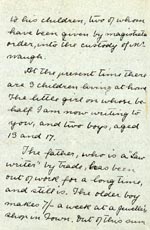 to his children, two of whom
have been given by magistrate's
order, into the custody of Mr
Waugh.
At the present time there
are 3 children living at home
The little girl on whose be-
half I am now writing to
you, and two boys, aged
13 and 17.
The father, who is a "law
writer" by trade, has been
out of work for a long time,
and still is. The older boy
makes 7/- a week at a jeweller's
shop in Town. Out of this sum